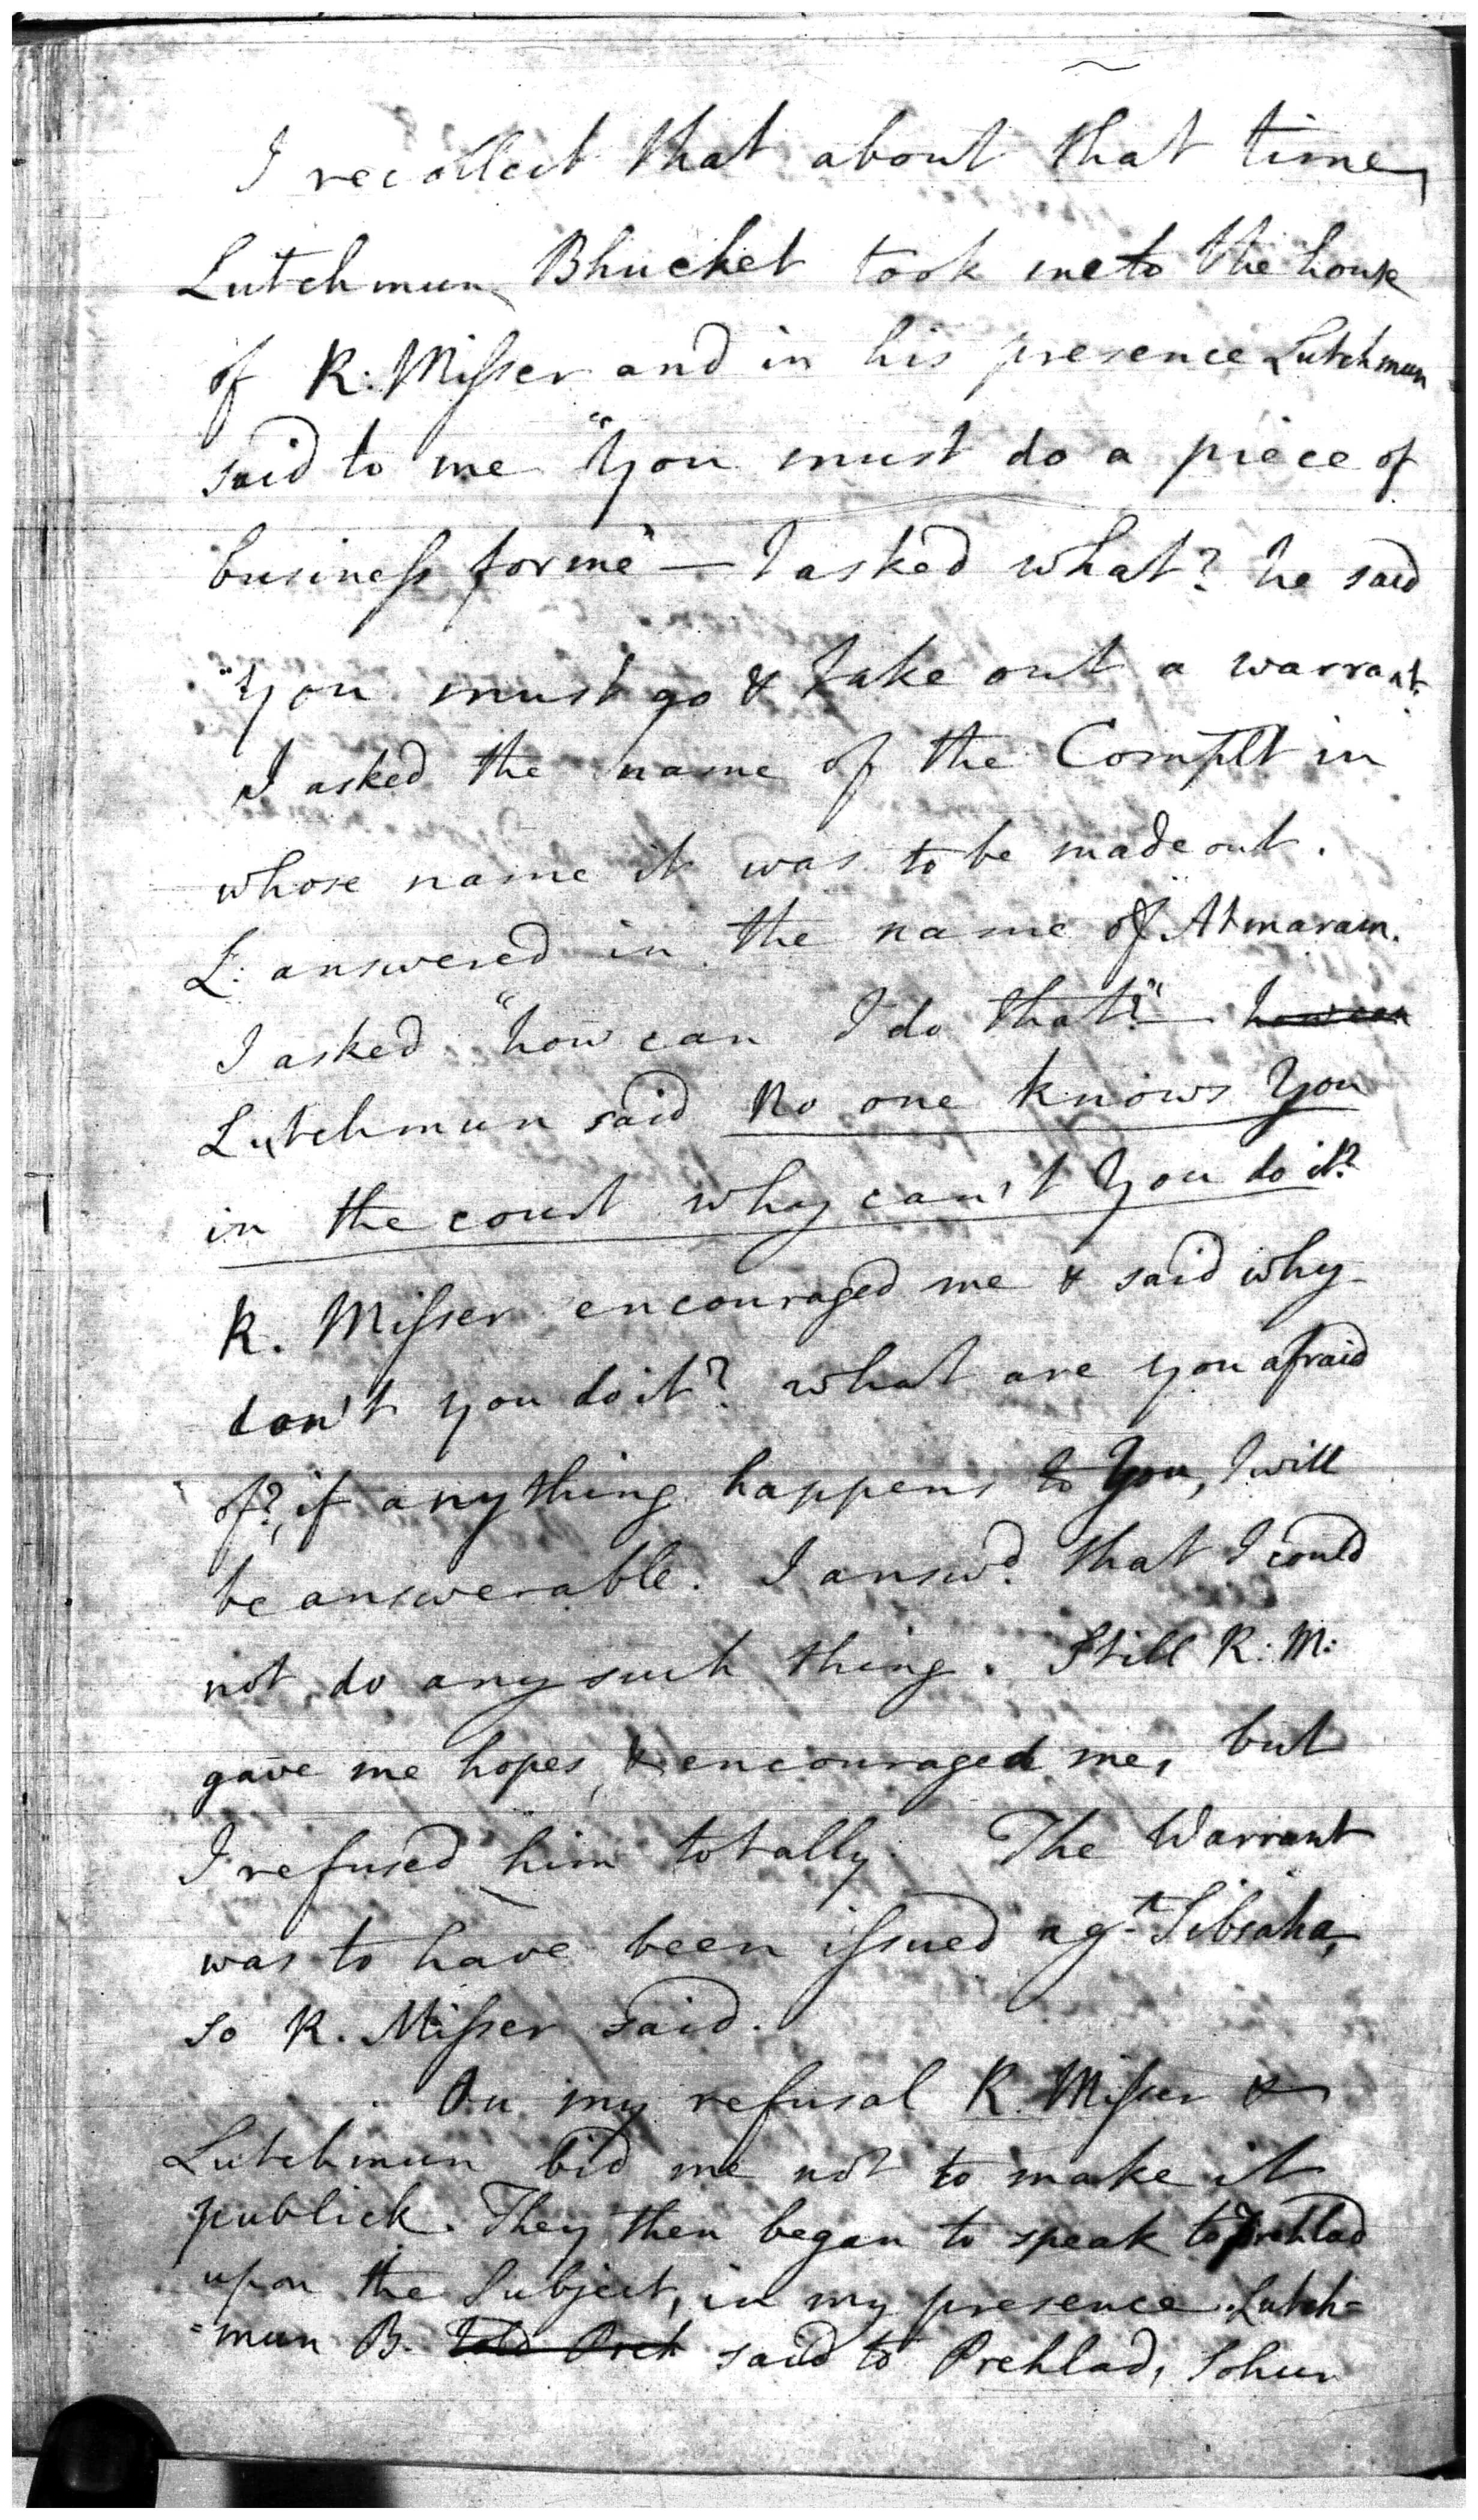 I recollect that about that time,
Lutchmun Bhucket took me to the house
of R: Misser and in his presence Lutchmun
said to me "You must do a piece of
business for me" — I asked what? he said
"You must go & take out a warrant.
I asked the name of the Complt in
whose name it was to be made out.
L: answered in the name of Atmaram.
I asked "how can I do that?" — how can
Lutchmun said No one knows You
in the court why can't You do it?
R. Misser encouraged me & said why
don't you do it? what are you afraid
of?, if any thing happens to You, I will
be answerable. I answd. that I could
not do any such thing. Still R: M:
gave me hopes, & encouraged me, but
I refused him totally. The Warrant
was to have been issued agt Sibsaha,
so R. Misser said.
On my refusal R. Misser &
Lutchmun bid me not to make it
publick. They then began to speak to Prehlad
upon the Subject, in my presence. Lutch=
=mun B. told Preh said to Prehlad, Sohur